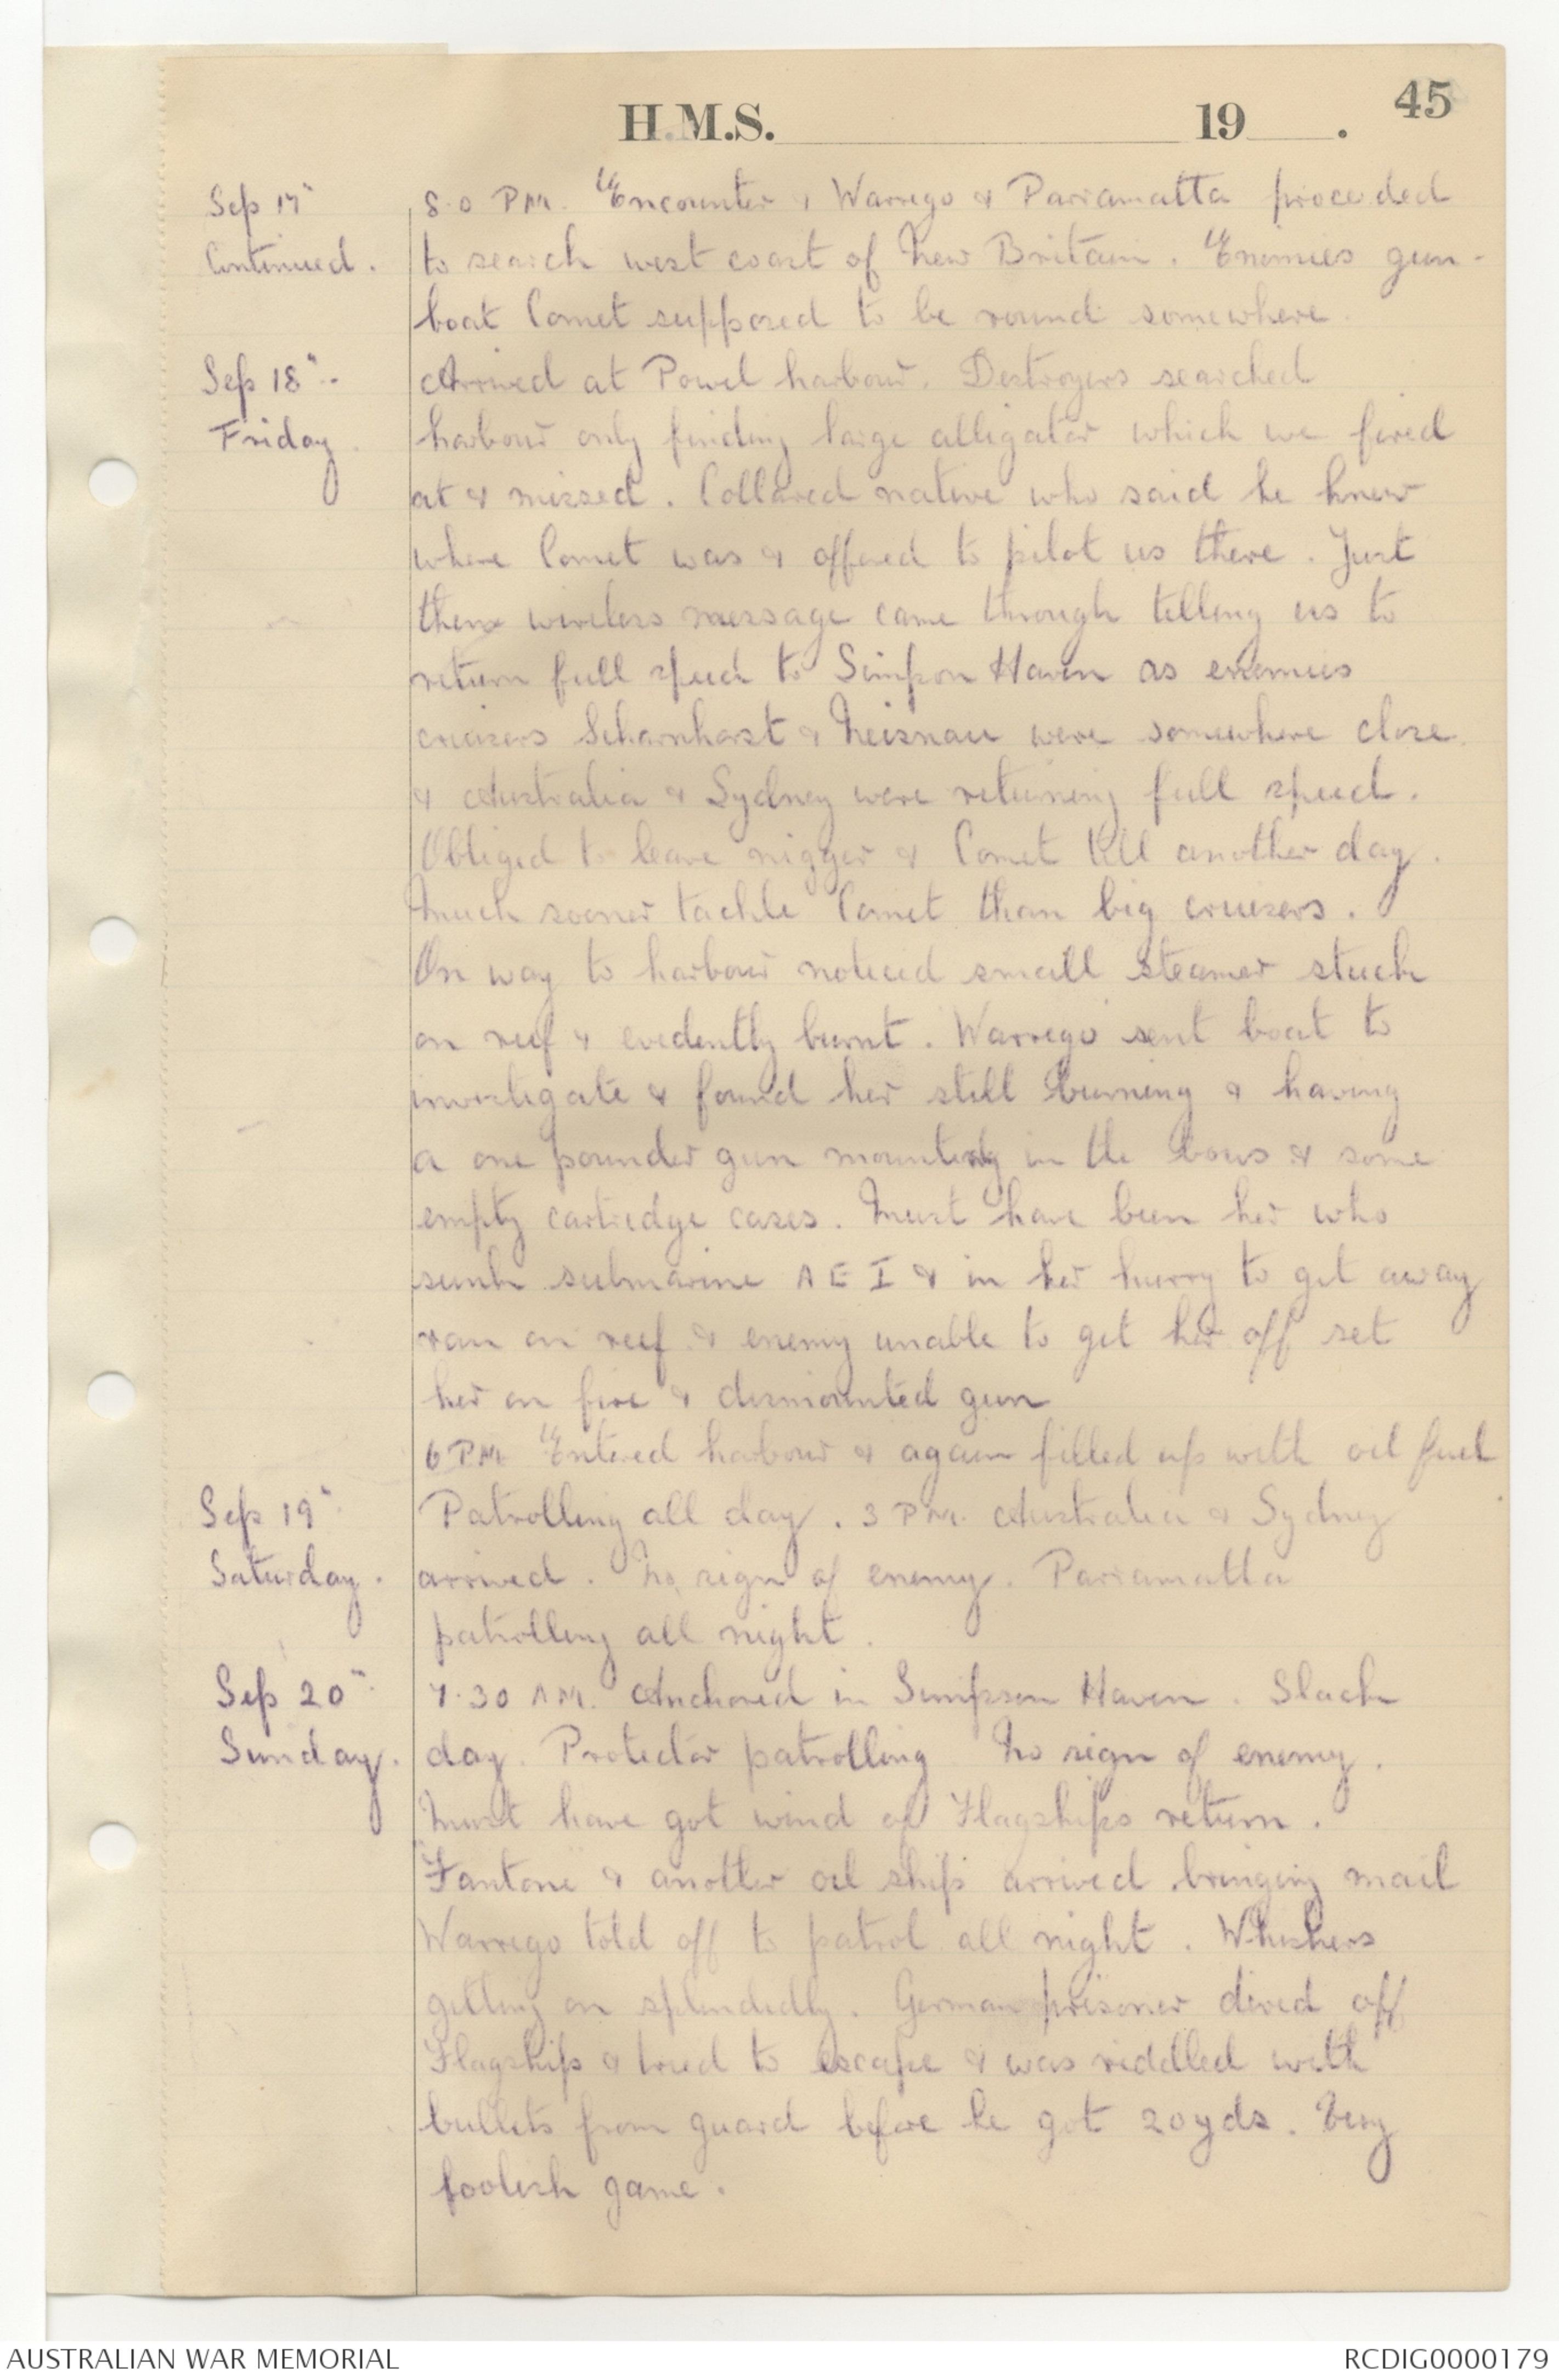 45
H.M.S. 19 .
Sep 17" 8.0 P.M. Encounter, Warrego & Parramatta proceeded
Continued. to search west coast of New Britain. Enemies gun-
boat Comet supposed to be round somewhere.
Sep 18" Arrived at Powel harbour. Destroyers searched
Friday. harbour only finding large alligator which we fired
at & missed. Collared native who said he knew
where Comet was & offered to pilot us there. Just
then wireless message came through telling us to
return full speed to Simpson Haven as enemies
cruisers Scharnhorst & Neisnau were somewhere close
& Australia & Sydney were returning full speed.
Obliged to leave nigger & Comet till another day.
Much sooner tackle Comet than big cruisers.
On way to harbour noticed small steamer stuck
on reef & evidently burnt. Warrego sent boat to
investigate & found her still burning & having
a one pounder gun mounted in the bows & some
empty cartredge cases. Must have been her who
sunk submarine AEI & in her hurry to get away
ran on reef & enemy unable to get her off set
her on fire & dismounted gun
6 P.M. Entered harbour & again filled up with oil fuel
Sep 19" Patrolling all day. 3 P.M. Australia & Sydney
Saturday. arrived. No sign of enemy. Parramatta
patrolling all night.
Sep 20" 7.30 A.M. Anchored in Simpson Haven. Slack
Sunday. day. Protector patrolling No sign of enemy.
Must have got wind of Flagships return.
Fantone & another oil ship arrived bringing mail
Warrego told off to patrol all night. Whiskers
getting on splendedly. German prisoner dived off
Flagship & tried to escape & was riddled with
bullets from guard before he got 20yds. Very
foolish game.
AUSTRALIAN WAR MEMORIAL RCDIG0000179